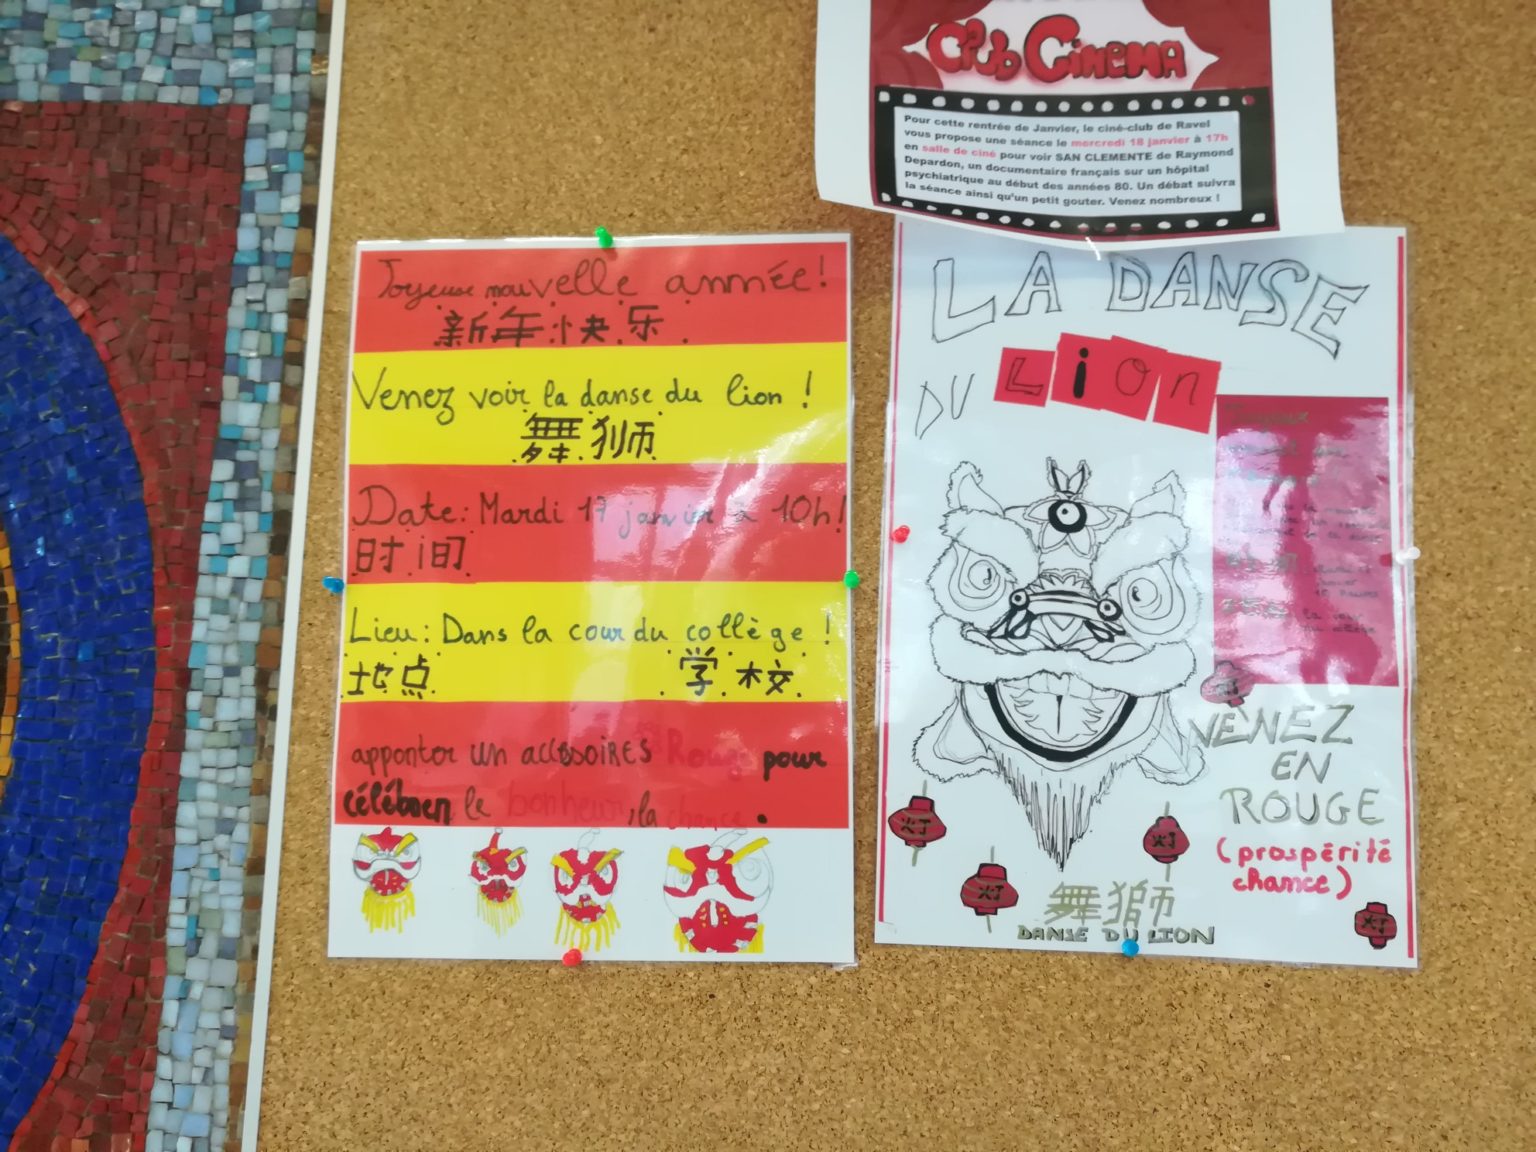 Club Cinema
Pour cette rentrée de Janvier, le ciné-club de Ravel
vous propose une séance le mercredi 18 janvier à 17h
en salle de ciné pour voir SAN CLEMENTE de Raymond
Depardon, un documentaire français sur un hôpital
psychiatrique au début des années 80. Un débat suivra
la séance ainsi qu'un petit gouter. Venez nombreux !
Joyeuse nouvelle année!
新年快乐.
Venez voir la danse du lion !
舞狮
Date: Mardi 17 janvier à 10h!
时间
Lieu: Dans la cour du collège !
地点 学校
apporter un accessoires Rouge pour
célébrer le bonheur, la chance.
LA DANSE
DU Lion
VENEZ
EN
ROUGE
(prospérité
chance)
灯
灯
灯
灯
舞獅
DANSE DU LION